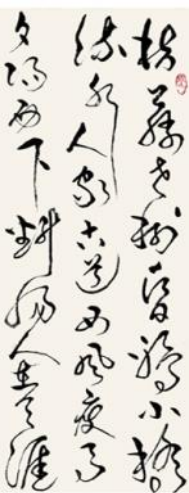 枯藤老樹昏鴉小橋
流水人家古道西風瘦馬
夕陽西下斷腸人在天涯